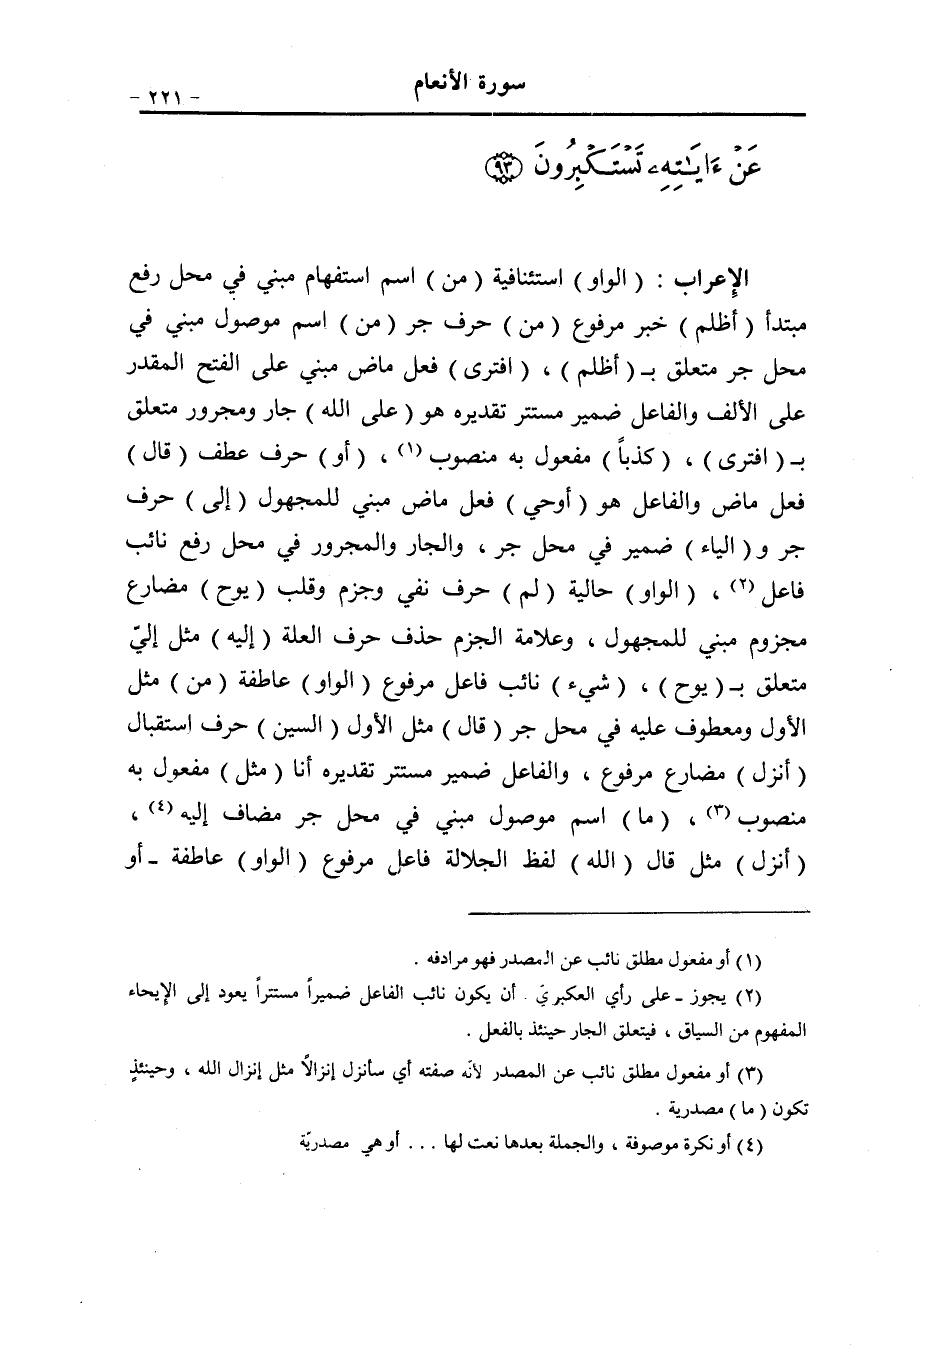 سورة الأنعام
- ٢٢١ -
عَنْ ءَايَـٰتِهِۦ تَسْتَكْبِرُونَ ﴿٩٣﴾
الإعراب : ( الواو ) استئنافية ( من ) اسم استفهام مبني في محل رفع
مبتدأ ( أظلم ) خبر مرفوع ( من ) حرف جر ( من ) اسم موصول مبني في
محل جر متعلق بـ ( أظلم ) ، ( افترى ) فعل ماض مبني على الفتح المقدر
على الألف والفاعل ضمير مستتر تقديره هو ( على الله ) جار ومجرور متعلق
بـ ( افترى ) ، ( كذباً ) مفعول به منصوب (١) ، ( أو ) حرف عطف ( قال )
فعل ماض والفاعل هو ( أوحي ) فعل ماض مبني للمجهول ( إلى ) حرف
جر و ( الياء ) ضمير في محل جر ، والجار والمجرور في محل رفع نائب
فاعل (٢) ، ( الواو ) حالية ( لم ) حرف نفي وجزم وقلب ( يوح ) مضارع
مجزوم مبني للمجهول ، وعلامة الجزم حذف حرف العلة ( إليه ) مثل إليّ
متعلق بـ ( يوح ) ، ( شيء ) نائب فاعل مرفوع ( الواو ) عاطفة ( من ) مثل
الأول ومعطوف عليه في محل جر ( قال ) مثل الأول ( السين ) حرف استقبال
( أنزل ) مضارع مرفوع ، والفاعل ضمير مستتر تقديره أنا ( مثل ) مفعول به
منصوب (٣) ، ( ما ) اسم موصول مبني في محل جر مضاف إليه (٤) ،
( أنزل ) مثل قال ( الله ) لفظ الجلالة فاعل مرفوع ( الواو ) عاطفة ـ أو
(١) أو مفعول مطلق نائب عن المصدر فهو مرادفه .
(٢) يجوز ـ على رأي العكبريّ . أن يكون نائب الفاعل ضميراً مستتراً يعود إلى الإيحاء
المفهوم من السياق ، فيتعلق الجار حينئذ بالفعل .
(٣) أو مفعول مطلق نائب عن المصدر لأنّه صفته أي سأنزل إنزالاً مثل إنزال الله ، وحينئذٍ
تكون ( ما ) مصدرية .
(٤) أو نكرة موصوفة ، والجملة بعدها نعت لها . . . أو هي مصدريّة